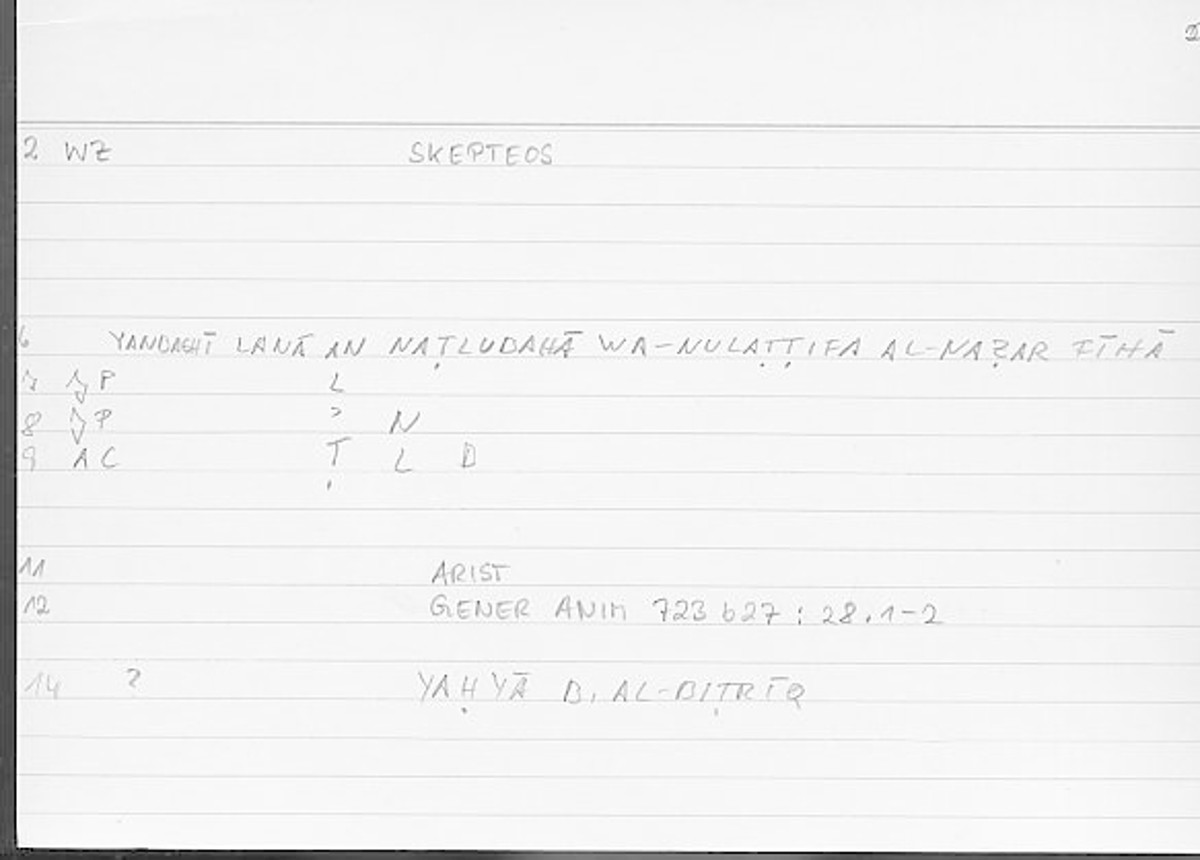 2 WZ SKEPTEOS
6 YANBAGHĪ LANĀ AN NAṬLUBAHĀ WA-NULAṬṬIFA AL-NAẒAR FĪHĀ
7 P L
8 P ʾ N
9 AC Ṭ L B
11 ARIST
12 GENER ANIM 723 b27 : 28.1-2
14 ? YAḤYĀ B. AL-BIṬRĪQ